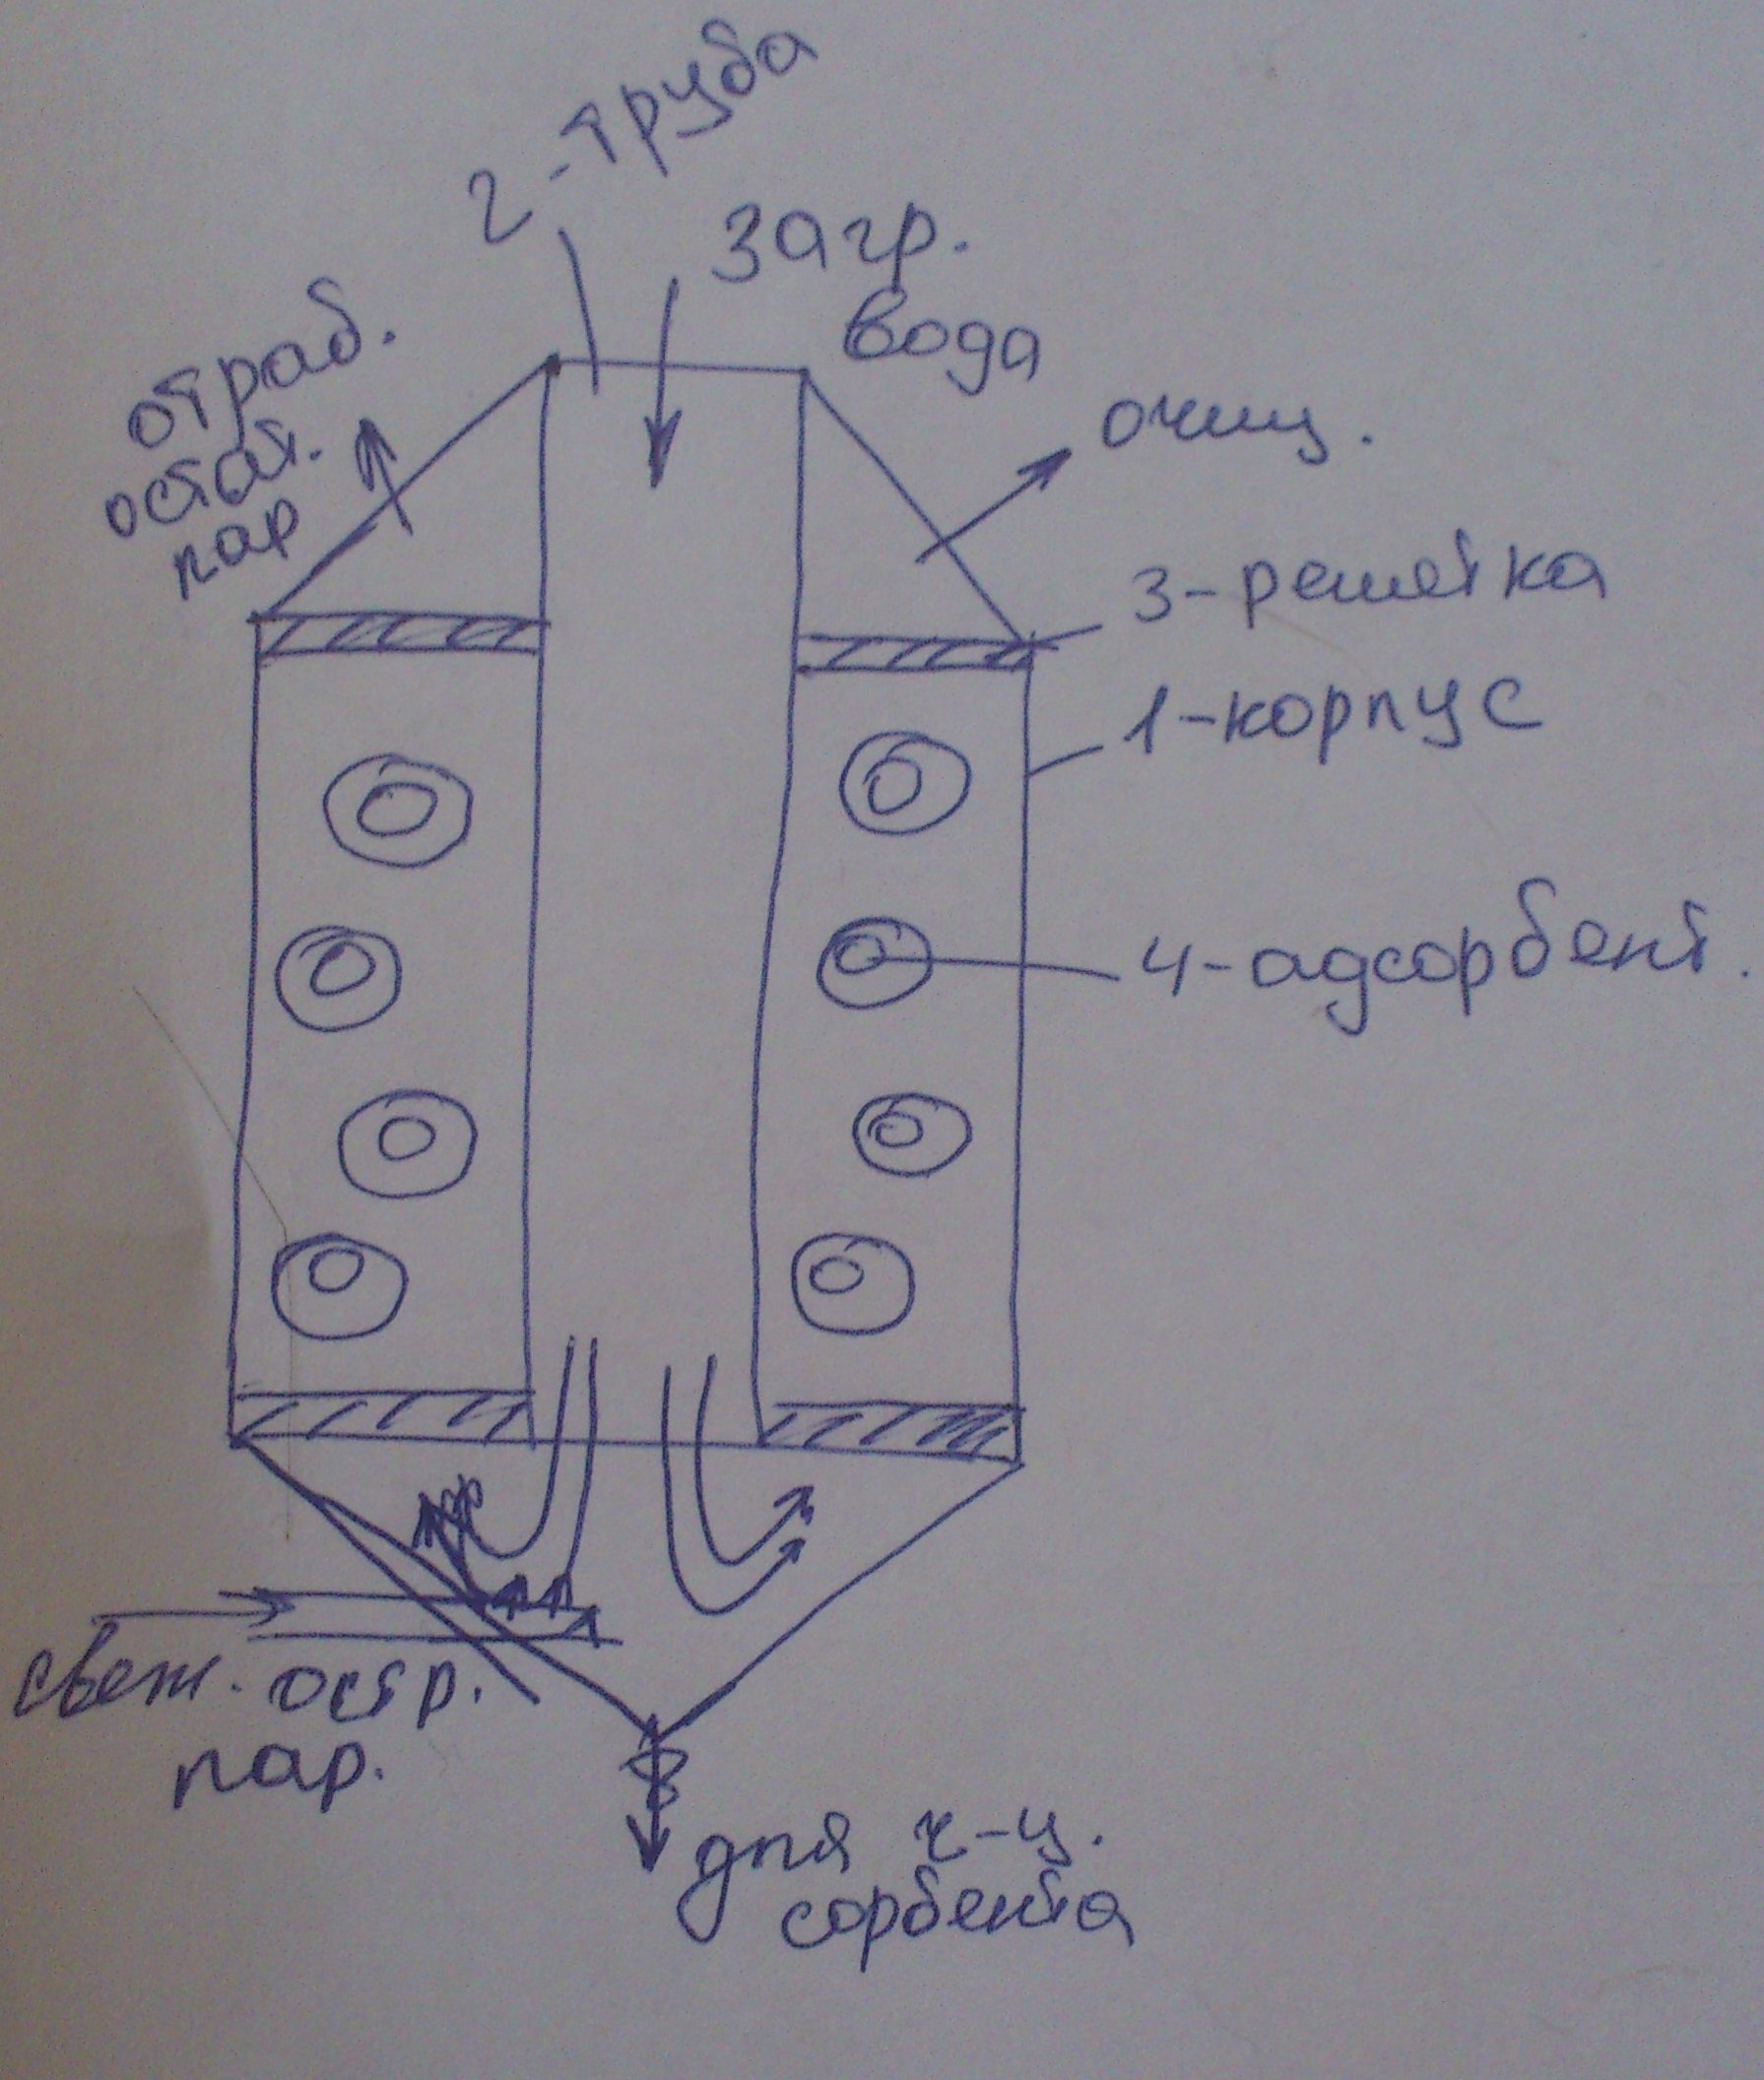 2-труба
загр.
вода
отраб.
остат.
пар
очищ.
3-решётка
1-корпус
4-адсорбент.
свеж. остр.
пар.
для ч-ц.
сорбента